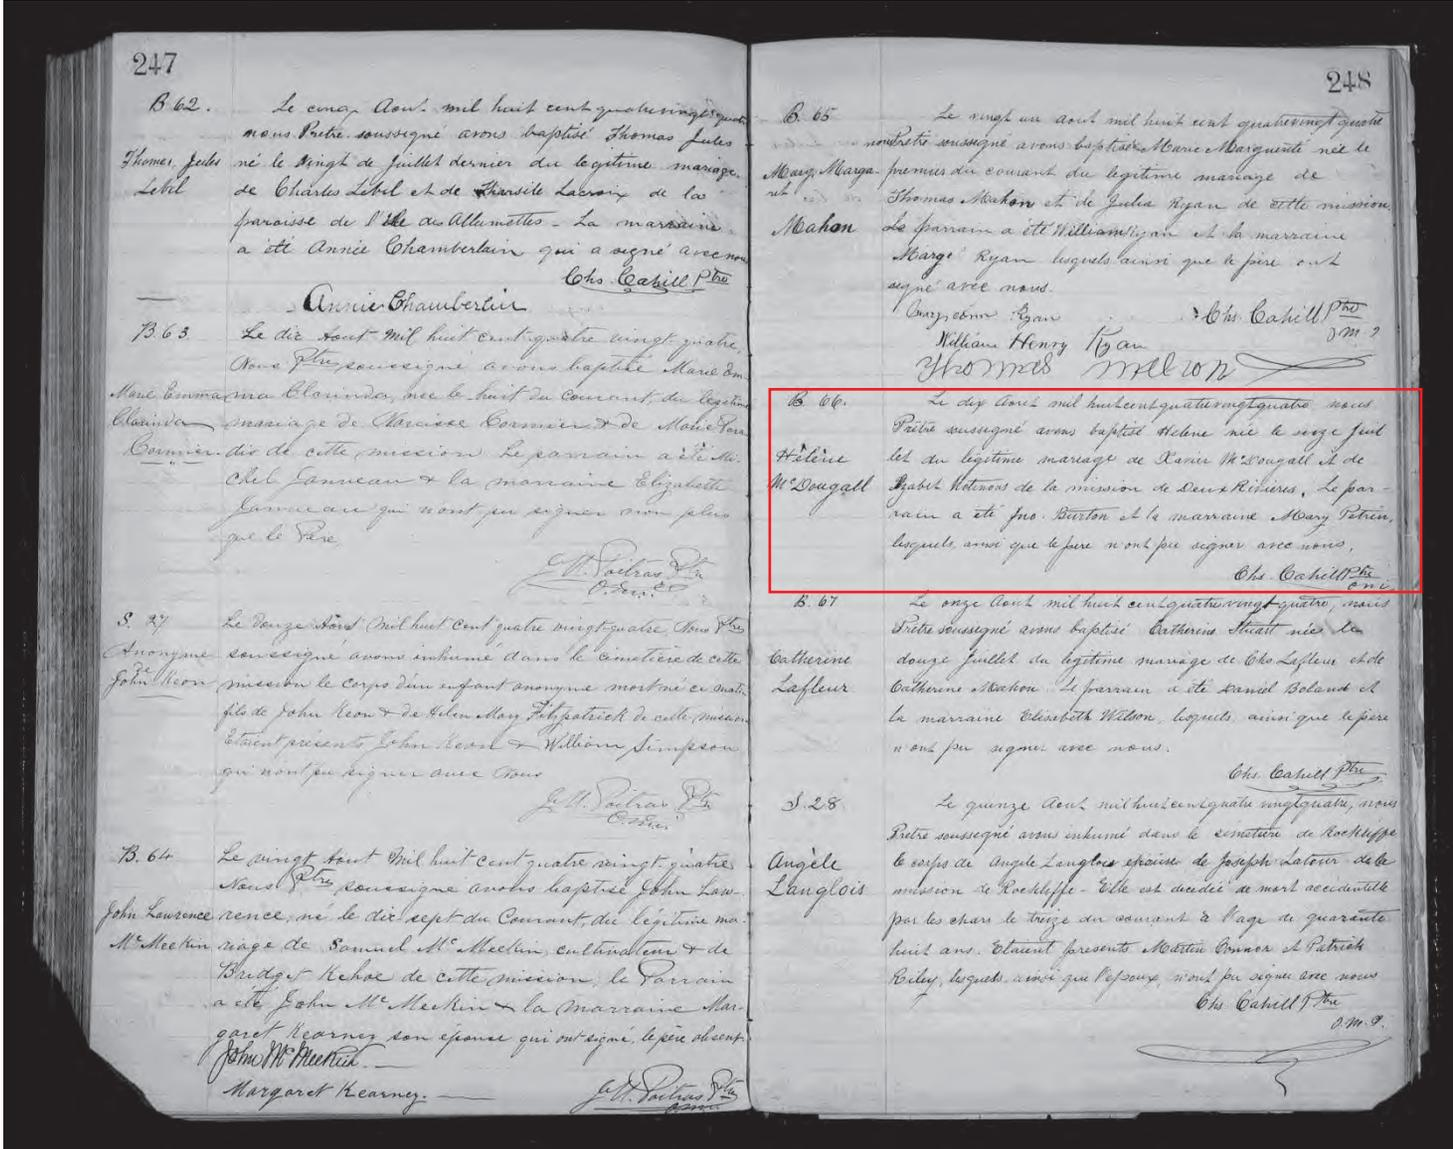 247
B 62.
Le cinq Aout mil huit cent quatrevingt quatre
nous Prêtre soussigné avons baptisé Thomas Jules
Thomas Jules
Lebel
né le vingt de Juillet dernier du legitime mariage
de Charles Lebel et de Tharsile Lacroix de la
paroisse de l'Ile des Allumettes - La marraine
a été Annie Chamberlain qui a signé avec nous
Chs. Cahill Ptre
Annie Chamberlin
B. 63
Le dix Aout mil huit cent quatre vingt quatre,
Nous Ptre soussigné avons baptisé Marie Em-
Marie Emma
Clarinda
Cormier
ma Clarinda, née le huit du courant, du legitime
mariage de Narcisse Cormier & de Marie
dis de cette mission. Le parrain a été Mi-
chel Janveau & la marraine Elizabeth
Janveau qui n'ont pu signer non plus
que le Père
J. A. Poitras Ptre
S. 27
Anonyme
de
John Keon
Le douze Aout mil huit cent quatre vingt quatre, Nous Ptre
soussigné avons inhumé dans le cimetière de cette
mission le corps d'un enfant anonyme mort né ce matin
fils de John Keon & de Helen Mary Fitzpatrick de cette mission
Etaient présents John Keon & William Simpson
qui n'ont pu signer avec Nous
J. A. Poitras Ptre
B. 64
John Lawrence
McMeekin
Le vingt Aout mil huit cent quatre vingt quatre
Nous Ptre soussigné avons baptisé John Law-
rence, né le dix sept du Courant, du légitime ma-
riage de Samuel McMeekin, cultivateur & de
Bridget Kehoe de cette mission; le Parrain
a été John McMeekin & la marraine Mar-
garet Kearney son épouse qui ont signé, le père absent
John McMeekin
Margaret Kearney.
J. A. Poitras Ptre
248
B. 65
Mary Marga-
ret
Mahon
Le vingt un Aout mil huit cent quatrevingt quatre
nous Prêtre soussigné avons baptisé Marie Marguerite née le
premier du courant du legitime mariage de
Thomas Mahon et de Julia Ryan de cette mission.
Le parrain a été William Ryan et la marraine
Marge Ryan lesquels ainsi que le père ont
signé avec nous.
Ryan
Chs. Cahill Ptre
William Henry Ryan
Thomas
B. 66.
Hélène
McDougall
Le dix Aout mil huit cent quatrevingt quatre nous
Prêtre soussigné avons baptisé Helene née le seize Juil
let du légitime mariage de Xavier McDougall et de
de la mission de Deux Rivières. Le par-
rain a été Jno. Burton et la marraine Mary Petrin,
lesquels, ainsi que le père n'ont pu signer avec nous.
Chs. Cahill Ptre
B. 67
Catherine
Lafleur
Le onze Aout mil huit cent quatrevingt quatre, nous
Prêtre soussigné avons baptisé Catherine Stuart née le
douze Juillet du légitime mariage de Chs Lafleur et de
Catherine Mahon. Le parrain a été Daniel Boland et
la marraine Elisabeth Wilson, lesquels, ainsi que le père
n'ont pu signer avec nous.
Chs. Cahill Ptre
S. 28
Angèle
Langlois
Le quinze Aout mil huit cent quatre vingt quatre, nous
Prêtre soussigné avons inhumé dans le simetière de Rockliffe
le corps de Angele Langlois epouse de Joseph Latour de la
mission de Rockliffe - Elle est decedée de mort accidentelle
par les chars le treize du courant à l'age de quarante
huit ans. Etaient presents Martin Connor et Patrick
Riley, lesquels, ainsi que l'epoux, n'ont pu signer avec nous
Chs Cahill Ptre